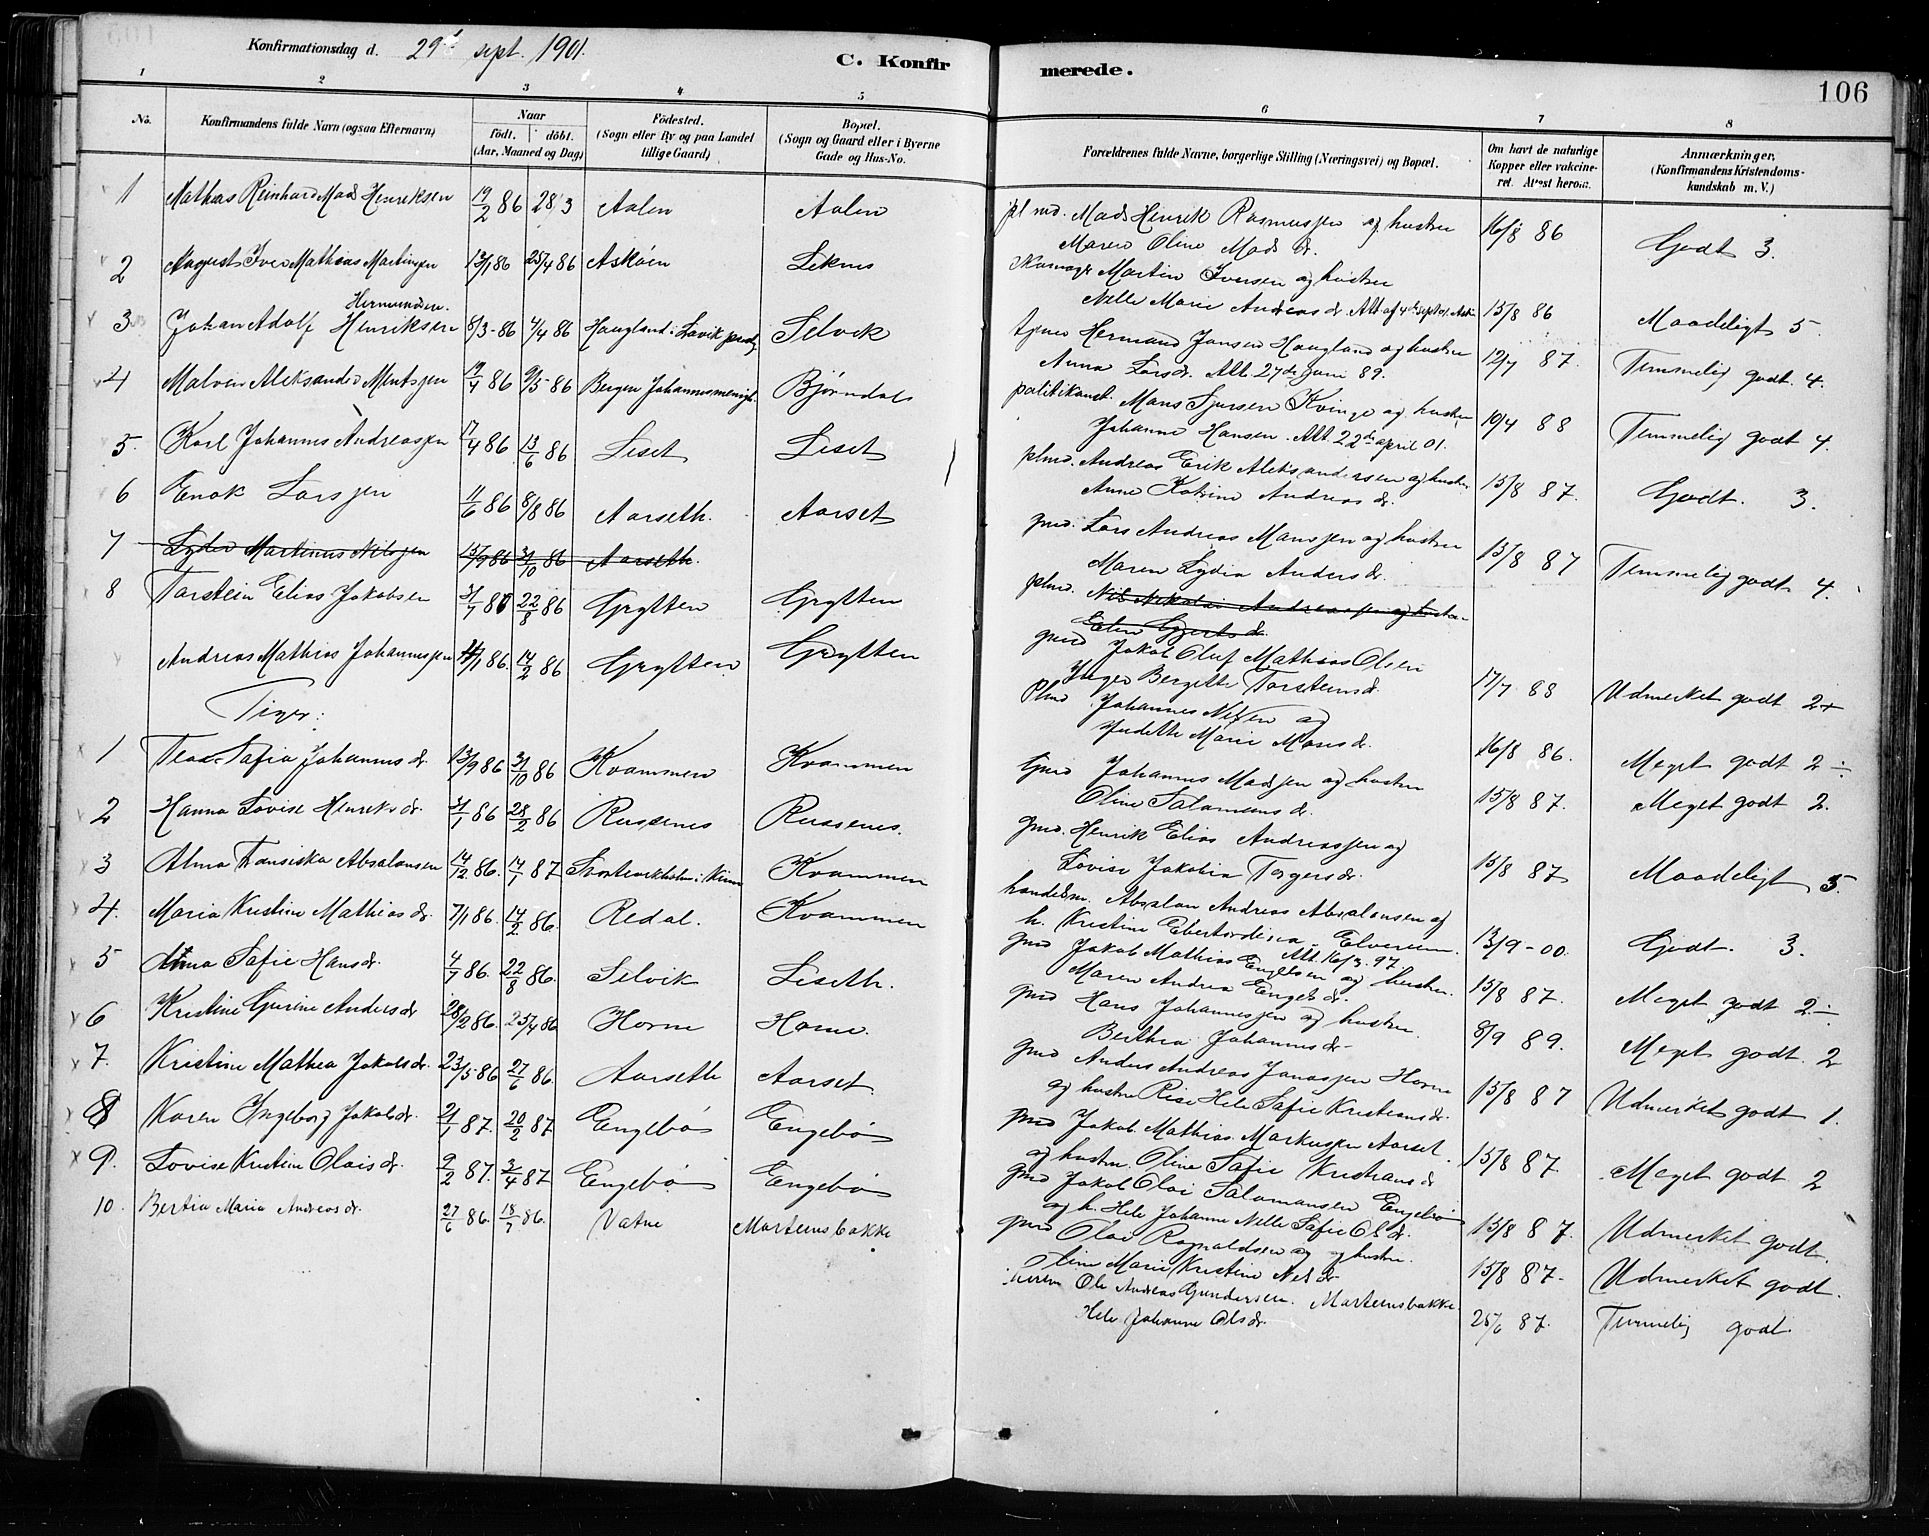 Konfirmationsdag d. 29de sept. 1901.
C. Konfirmerede.
106
1 2 3 4 5 6 7 8
No.
Konfirmandens fulde Navn (ogsaa Efternavn)
Naar
født. døbt.
(Aar, Maaned og Dag)
Fødested.
(Sogn eller By og paa Landet
tillige Gaard)
Bopæl.
(Sogn og Gaard eller i Byerne
Gade og Hus-No.
Forældrenes fulde Navne, borgerlige Stilling (Næringsvei) og Bopæl.
Om havt de naturlige
Kopper eller vakcine-
ret. Attest herom.
Anmærkninger.
(Konfirmandens Kristendoms-
kundskab m. V.)
1 Mathias Reinhard Mads Henriksen 19/2 86 28/3 Aalen Aalen
pl md. Mads Henrik Rasmussen og hustru
Maren Oline Mads dr. 16/8 86 Godt 3.
2 August Iver Mathias Martinsen 13/1 86 25/4 86 Askøen Leknes
Martin Iversen og hustru
Nelle Marie Andreas dr. Att af 4de sept 01. 15/8 86 Maadeligt 5
Hermundsen.
3 Johan Adolf Henriksen 8/3-86 4/4 86 Haugland i Lavik Selvik
Hermund Jansen Haugland og hustru
Anna Lars dr. Att. 27de Juni 89. 12/7 87. Temmelig godt. 4.
4 Malvin Aleksander Mentsen 19/4 86 9/5 86 Bergen Johannesmenigh. Bjørndal
politikonst. Mons Sjursen Kvinge og hustru
Johanne Hansen. Att. 22de april 01. 10/4 88 Temmelig godt 4.
5. Karl Johannes Andreassen 17/4 86 13/6 86 Liset Liset
plmd. Andreas Erik Aleksandersen og hustru
Anne Katrine Andreas dr. 15/8 87. Godt. 3.
6 Enok Larssen 11/6 86 8/8 86 Aarseth. Aarset
gmd. Lars Andreas Monssen og hustru
Maren Lydia Anders dr. 15/8 87 Temmelig godt 4.
7 Lyder Martinus Nilssen 15/9 86 31/10 86 Aarseth.
plmd. Nils Nikolai Andreassen og hustru
Elen Egerts dr.
8 Torstein Elias Jakobsen 31/7 86 22/8 86 Grytten Grytten
gmd Jakob Oluf Mathias Olsen
Inger Bergitte Torsteins dr. 17/7 88 Udmerket godt 2+
Andreas Mathias Johannessen 11/1 86. 14/2 86 Grytten Grytten
Plmd Johannes Nilsen og
Judithe Marie Mons dr. 16/8 86. Meget godt 2÷
Piger:
1 Thea Safia Johannes dr. 13/9 86 31/10 86 Kvammen Kvammen
Gmd Johannes Madssen og hustru
Oline Salamons dr. 15/8 87. Meget godt 2.
2 Hanna Lovise Henriks dr. 31/1 86 28/2 86 Russenes Russenes.
gmd. Henrik Elias Andreassen og
Lovise Jakobia Torgers dr. 15/8 87 Maadeligt 5.
3 Alma Fransiska Absalonsen 14/12 86. 14/1 87 Kvammen
handelsm. Absalon Andreas Absalonsen og
h. Kristine Elverum. Att. 16/3. 97 13/9-00. Godt. 3.
4. Maria Kristine Mathias dr. 7/1 86. 14/2 86. Redal. Kvammen
gmd Jakob Mathias Engelsen og hustru.
Maren Andrea Engels dr. 15/8 87. Meget godt 2÷
5 Anna Safie Hans dr. 4/7 86. 22/8 86. Selvik Liseth.
gmd Hans Johannessen og hustru.
Berthea Johannes dr. 8/9 89. Meget godt. 2
6 Kristine Gurine Anders dr 28/2 86. 25/4 86 Horne Horne.
gmd Anders Andreas Jonassen Horne
og hustru Rise Hele Safie Kristians dr. 15/8 87 Udmerket godt 1.
7. Kristine Mathea Jakobs dr. 23/5 86 27/6 86. Aarseth Aarset
gmd Jakob Mathias Markussen Aarset.
og hustru. Oline Safie Kristians dr 15/8 87. Meget godt 2
8 Karen Ingeborg Jakobs dr. 21/1 87. 20/2 87 Engebø Engebø
gmd Jakob Olai Salamonsen Engebø
og h. Hele Johanne Nelle Safie Ols dr. 15/8 87. Udmerket godt.
9. Lovise Kristine Olais dr. 9/2 87. 3/4 87 Engebø Engebø
gmd Olai Ragnaldsen og hustru.
Oline Marie Kristine Nels dr 15/8 87- Udmerket godt.
10. Bertia Maria Andreas dr. 27/6 86. 18/7 86. Vatne Martensbakke
Ole Andreas Gundersen. Martensbakke.
Hele Johanne Ols dr. 25/6 87. Temmelig godt.